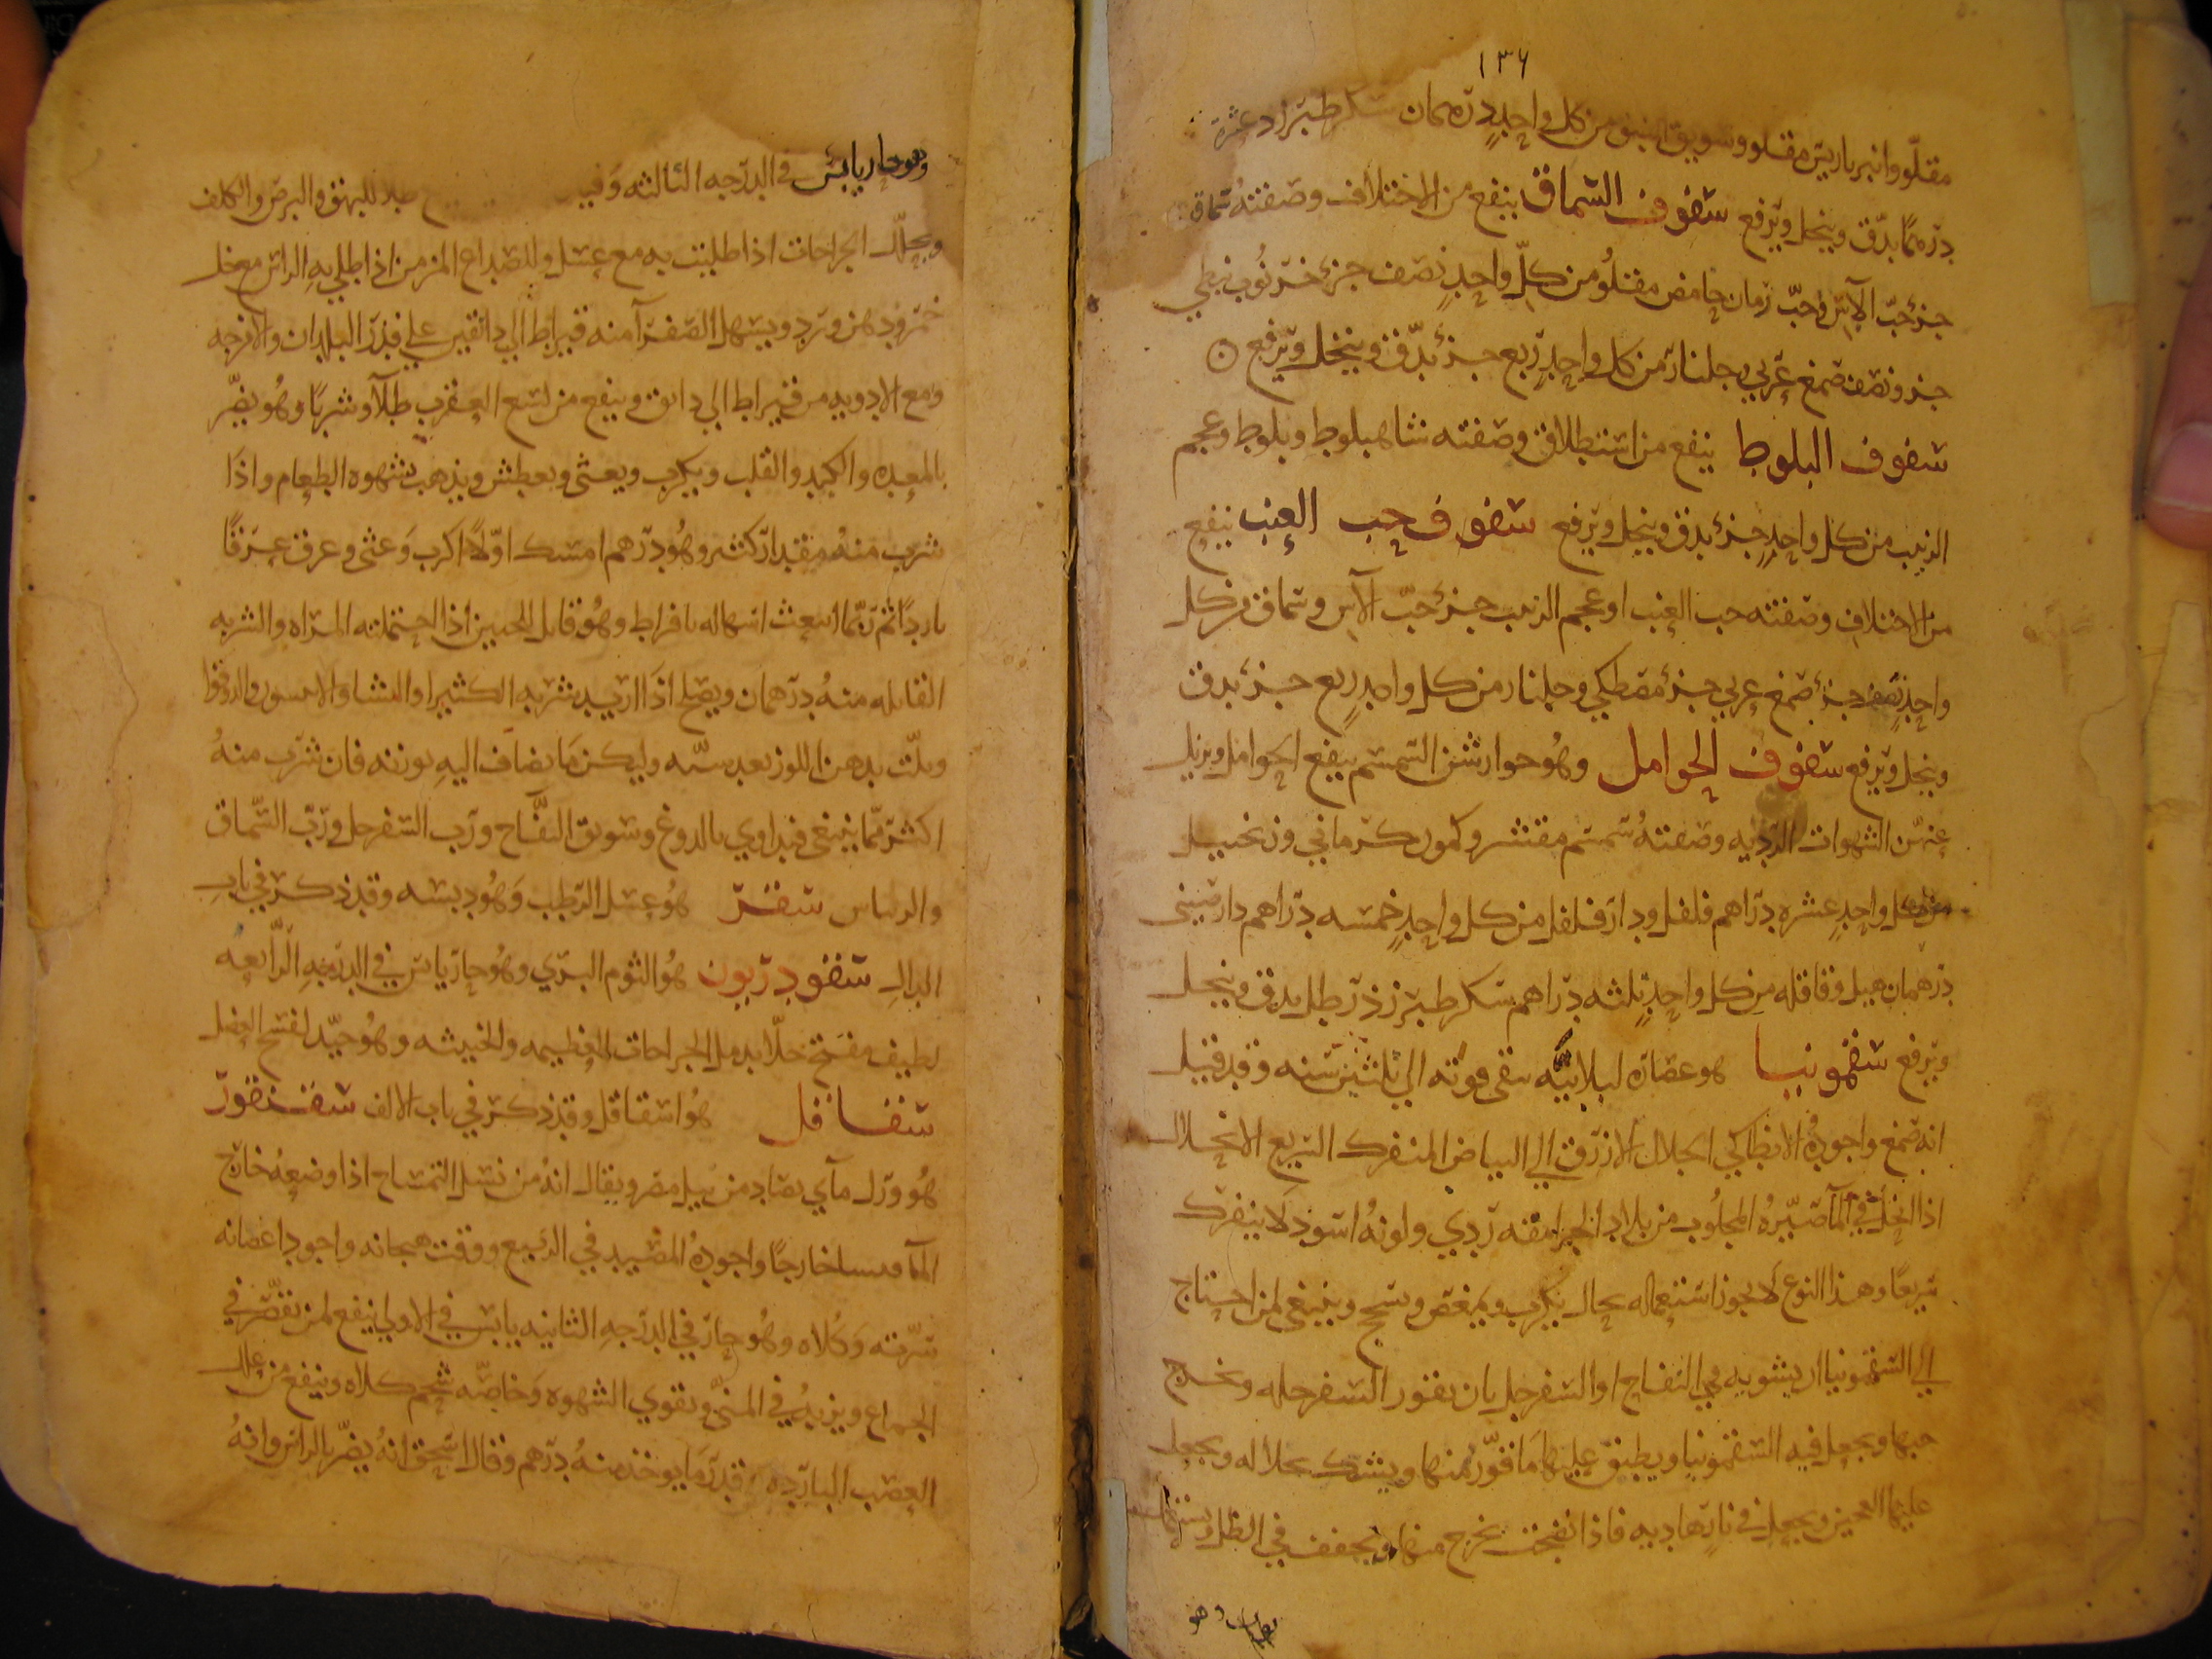 ١٣٦
مقلو وانبرباريس مقلو وسويق النبق من كل واحد درهمان سكر طبرزد عشرة
درهما يدق وينخل ويرفع سفوف السماق ينفع من الاختلاف وصفته سماق
جزء حب الآس وحب رمان حامض مقلو من كل واحد نصف جزء خرنوب نبطي
جزو نصف صمغ عربي وجلنار من كل واحد ربع جزء يدق وينخل ويرفع
سفوف البلوط ينفع من استطلاق وصفته شاهبلوط وبلوط وعجم
الزبيب من كل واحد جزء يدق وينخل ويرفع سفوف حب العنب ينفع
من الاختلاف وصفته حب العنب او عجم الزبيب جزء حب الآس وسماق من كل
واحد نصف جزء صمغ عربي جزء مصطكي وجلنار من كل واحد ربع جزء يدق
وينخل ويرفع سفوف الحوامل وهو جوارشن السمسم ينفع الحوامل ويزيل
عنهن الشهوات الردية وصفته سمسم مقشر وكمون كرماني وزنجبيل
من كل واحد عشره دراهم فلفل ودارفلفل من كل واحد خمسه دراهم دارصيني
درهمان هيل وقاقله من كل واحد ثلثه دراهم سكر طبرزذ رطل يدق وينخل
ويرفع سقمونيا هو عصاره لبلابيه تبقى قوته الي ثلثين سنه وقد قيل
انه صمغ واجوده الانطاكي الجلال الازرق الي البياض المنفرك السريع الانحلال
اذا انحل في المآ صيره المجلوب من بلاد الجرامقه ردي ولونه اسود لا ينفرك
سريعا وهذا النوع لا يجوز استعماله بحال يكرب ويمغص ويسحج وينبغي لمن احتاج
الي السقمونيا ان يشويه في التفاح او السفرجل بان يقور السفرجله ويخرج
حبها ويجعل فيه السقمونيا ويطبق عليها ما قور منها ويشك بخلاله ويجعل
عليها العجين ويجعل في نار هاديه فاذا نضجت يخرج منها ويجفف في الظل ويستعمل
وهو حار يابس في الدرجه الثالثه وفيه جلا للبهق والبرص والكلف
ويحلل الجراحات اذا طليت به مع عسل وللصداع المزمن اذا طلي به الراس مع خل
خمر ودهن ورد ويسهل الصفرآ منه قيراط الي دانقين علي قدر البلدان والامزجه
ومع الادويه من قيراط الي دانق وينفع من لسع العقرب طلآ وشربا وهو يضر
بالمعده والكبد والقلب ويكرب ويغثى ويعطش ويذهب بشهوه الطعام واذا
شرب منه مقدار كثير وهو درهم امسك اولا اكرب وغثى وعرق عرقا
باردا ثم ربما انبعث اسهاله بافراط وهو قاتل للجنين اذا احتملته المراه والشربه
القاتله منه درهمان ويصلح اذا اريد شربه الكثيرا والنشا والانيسون والدوقوا
ويلت بدهن اللوز بعد شيه وليكن ما يضاف اليه بوزنه فان شرب منه
اكثر مما ينبغي فيداوي بالدوغ وسويق التفاح ورب السفرجل ورب السماق
والريباس سقر هو عسل الرطب وهو دبسه وقد ذكر في باب
الدال سقوردريون هو الثوم البري وهو حار يابس في الدرجه الرابعه
لطيف مفتح جلا يدمل الجراحات العظيمه والخبيثه وهو جيد لفسخ العضل
سقاقل هو اشقاقل وقد ذكر في باب الالف سقنقور
هو ورل مآي يصاد من نيل مصر ويقال انه من نسل التمساح اذا وضعه خارج
المآ خارجا واجوده المصيد في الربيع ووقت هيجانه واجود اعضائه
سرته وكلاه وهو حار في الدرجه الثانيه يابس في الاولي ينفع لمن نقصر في
الجماع ويزيد في المني ويقوي الشهوه وخاصه شحم كلاه وينفع من علل
العصب البارده قدر ما يوخذ منه درهم وقال اسحق انه يضر بالراس وانه